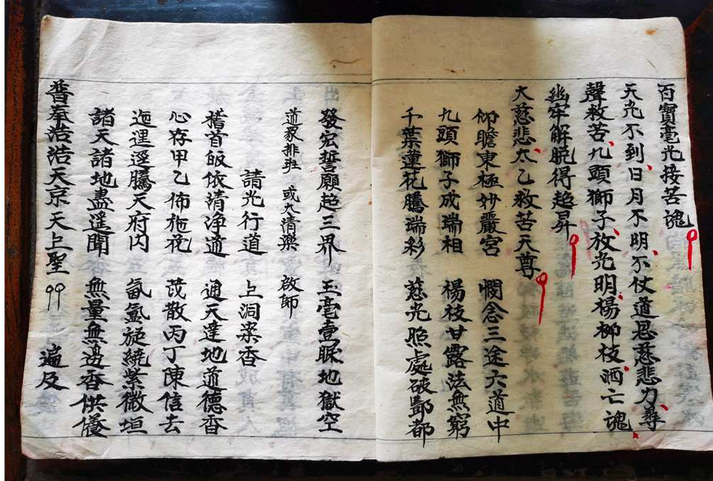 百寶毫光接苦魂
天光不到日月不明不仗道恩慈悲力尋
聲救苦九頭獅子放光明楊柳枝洒亡魂
幽牢解脱得超昇
大慈悲太乙救苦天尊
仰瞻東極妙嚴宮 憫念三途六道中
九頭獅子成瑞相 楊枝甘露法無窮
千葉蓮花騰瑞彩 慈光照處破酆都
發宏誓願超三界 玉毫壹照地獄空
道衆排班 或大清樂 啟師
請光行道 上洞梁香
稽首皈依清淨道 通天達地道德香
心存甲乙佈施視 茂散丙丁陳信去
迤逦逕騰天府内 氤氲旋繞紫微垣
諸天諸地盡遥聞 無量無边香供養
普奉浩浩天京天上聖 遍及